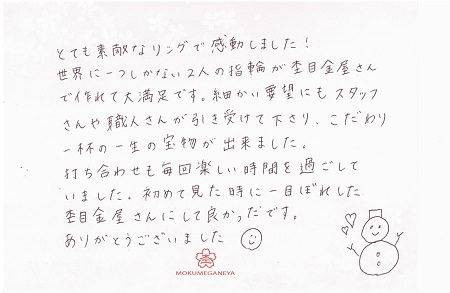 とても素敵なリングで感動しました！
世界に一つしかない2人の指輪が杢目金屋さん
で作れて大満足です。細かい要望にもスタッフ
さんや職人さんが引き受けて下さり、こだわり
一杯の一生の宝物が出来ました。
打ち合わせも毎回楽しい時間を過ごして
いました。初めて見た時に一目ぼれした
杢目金屋さんにして良かったです。
ありがとうございました
MOKUMEGANEYA